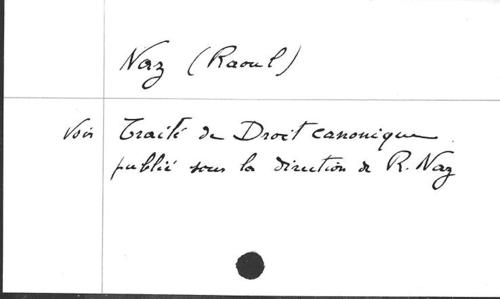 Naz (Raoul)
Voir Traité de Droit canonique
publié sous la direction de R. Naz